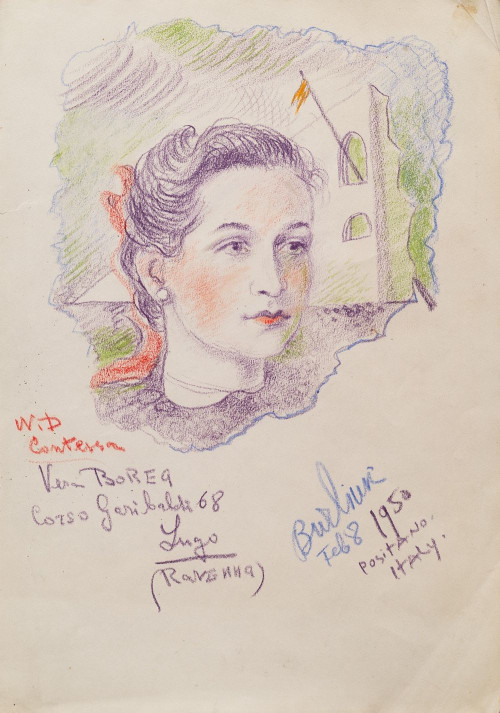 N.D
Contessa
Vera BOREA
Corso Garibaldi 68
Lugo
(RaveNNa)
Burliuk
Feb 8 1950
POSITANO.
ITALY.